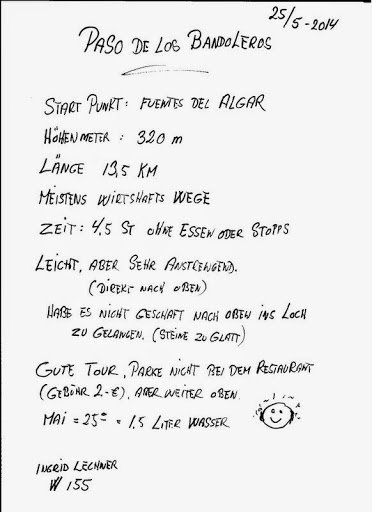 25/5-2014
PASO DE LOS BANDOLEROS
START PUNKT: FUENTES DEL ALGAR
HÖHENMETER: 320 m
LÄNGE 13,5 KM
MEISTENS WIRTSHAFTS WEGE
ZEIT: 4,5 ST OHNE ESSEN ODER STOPPS
LEICHT, ABER SEHR ANSTRENGEND.
(DIREKT NACH OBEN)
HABE ES NICHT GESCHAFT NACH OBEN INS LOCH
ZU GELANGEN. (STEINE ZU GLATT)
GUTE TOUR, PARKE NICHT BEI DEM RESTAURANT
(GEBÜHR 2-€), ABER WEITER OBEN.
MAI = 25° = 1,5 LITER WASSER
INGRID LECHNER
W 155